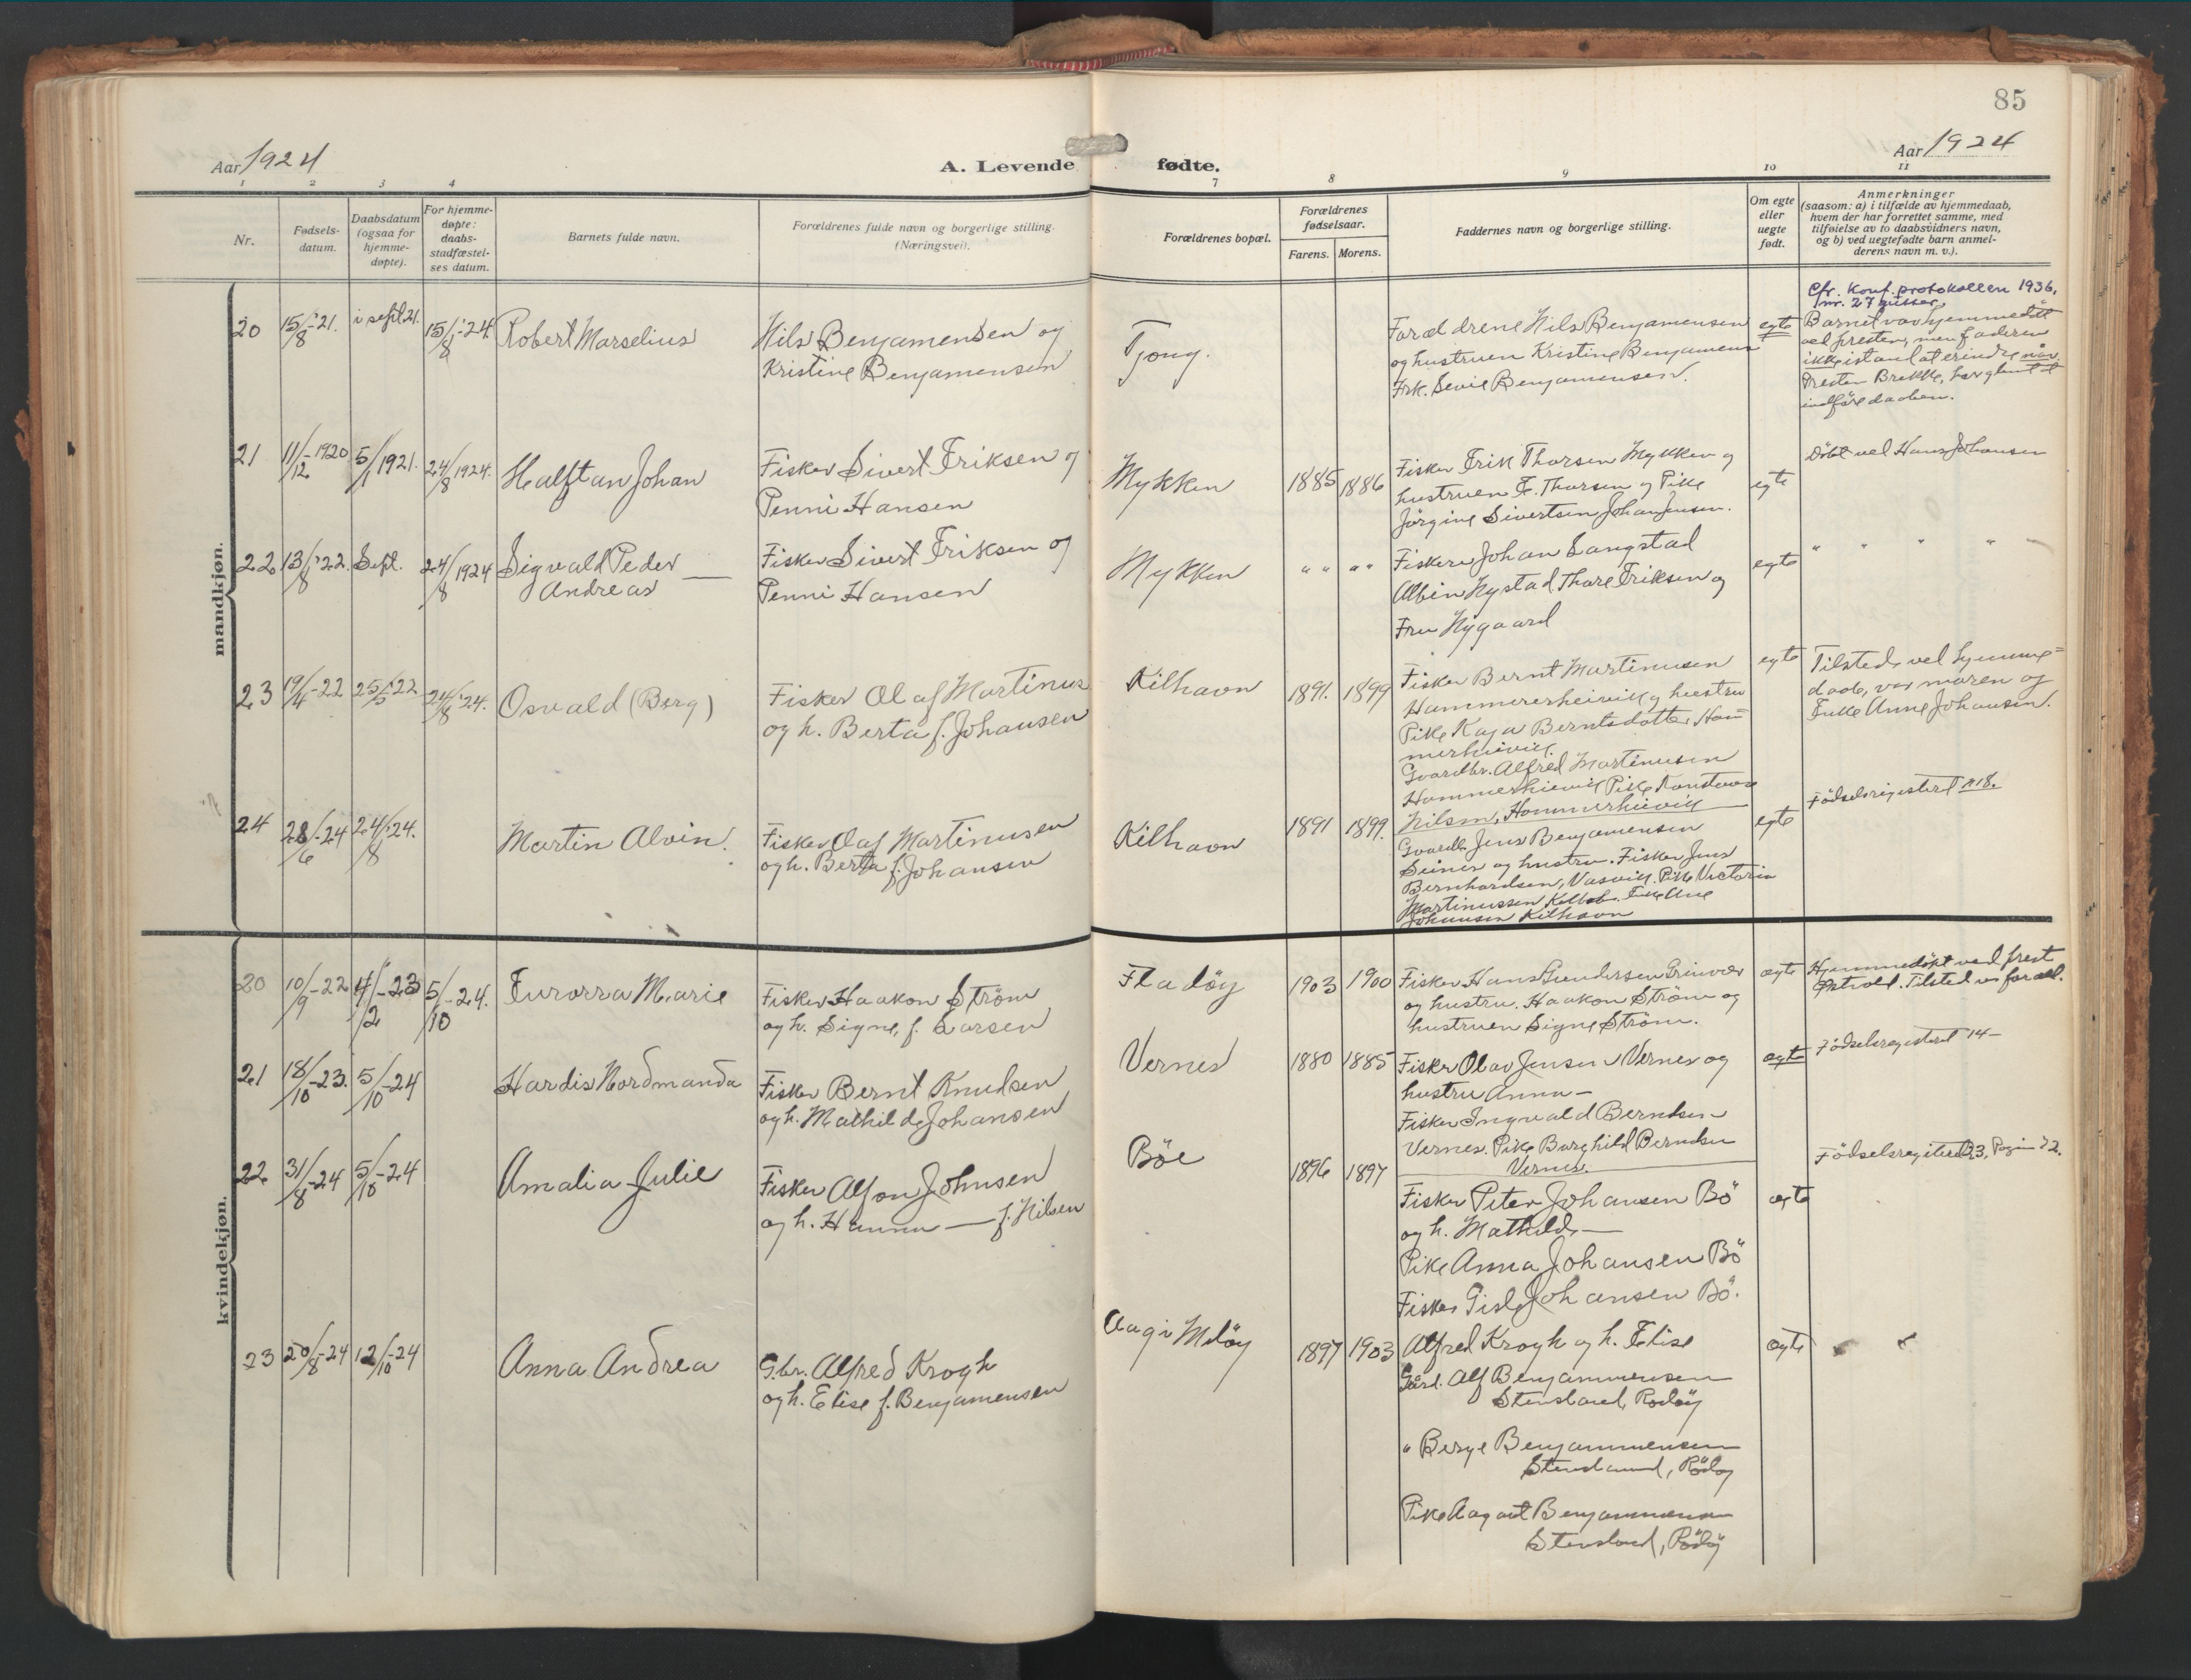 85
Aar 1924
A. Levende fødte.
Aar 1924
1 2 3 4 7 8 9 10 11
Nr.
Fødsels-
datum.
Daabsdatum
(ogsaa for
hjemme-
døpte).
For hjemme-
døpte:
daabs-
stadfæstel-
ses datum.
Barnets fulde navn.
Forældrenes fulde navn og borgerlige stilling.
(Næringsvei).
Forældrenes bopæl.
Forældrenes
fødselsaar.
Farens. Morens.
Faddernes navn og borgerlige stilling.
Om egte
eller
uegte
født.
Anmerkninger
(saasom: a) i tilfælde av hjemmedaab,
hvem der har forrettet samme, med
tilføielse av to daabsvidners navn,
og b) ved uegtefødte barn anmel-
derens navn m. v.).
mandkjøn.
20 15/8-21. i sept 21. 15/8-24. Robert Marselius
Nils Benjamensen og
Kristine Benjamensen
Tjong.
Forældrene Nils Benjamensen
og hustruen Kristine Benjamens
Frk. Benjamensen.
egte
Cfr. Konf. protokollen 1936,
nr. 27 gutter.
Barnet var hjemmedøbt
ved presten, men faderen
ikke istand at erindre når.
Presten Brekke, har glemt at
indføre daaben.
21 11/12-1920 5/1 1921. 24/8 1924. Halftan Johan
Fisker Sivert Eriksen og
Penni Hansen
Mykken
1885 1886
Fisker Erik Thorsen Mykken og
hustruen E. Thorsen og Pike
Jørgine Sivertsen Johan Jensen.
egte
Döbt ved Hans Johansen
22 13/8-22. Sept. 24/8 1924 Sigvald Peder —
Andreas
Fisker Sivert Eriksen og
Penni Hansen
Mykken
" " " "
Fiskere Johan Langstad
Albin Nystad Thore Eriksen og
Fru Nygaard
egte
" " " "
23 19/4-22 25/5-22 24/8-24. Osvald (Berg)
Fisker Olaf Martinus
og h. Berta f. Johansen
Kilhavn
1891. 1899
Fisker Bernt Martinusen
Hammererheivik og hustru
Pike Kaja Berntsdatter Ham=
merheivik.
Gvardbr. Alfred Martinusen
Hammerheivik Pike
Nilsen, Hammerheivik
egte
Tilstede ved hjemme=
daab, var moren og
Enke Anne Johansen.
24 28/6-24 24/8-24. Martin Alvin.
Fisker Olaf Martinusen
og h. Berta f. Johansen
Kilhavn
1891 1899.
Gvardb. Jens Benjamensen
og hustru. Fisker Jens
Bernhardsen, Vasvik. Pike Victoria
Martinussen Enke Ane
Johansen Kilhavn
egte
Födselsregisteret n 18.
kvindekjøn.
20 10/9-22 4/2-23 5/10-24. Furorra Marie
Fisker Haakon Ström
og h. Signe, f. Larsen
Fladöy
1903 1900
Fisker Hans Gundersen Grinvær
og hustru. Haakon Ström og
hustruen Signe Ström.
egte
Hjemmedöpt ved prest
Tilsted
21 18/10-23. 5/10-24 Hardis Nordmanda
Fisker Bernt Knudsen
og h. Mathilde Johansen
Vernes
1880 1885
Fisker Olav Jensen Vernes og
hustru Anna —
Fisker Ingvald Berndsen
Vernes. Pike Borghild Berndsen
Vernes.
egte
Födselsregisteret 14 —
22 31/8-24 5/10-24 Amalia Julie
Fisker Alfon Johnsen
og h. Hanna — f. Nilsen
Böe
1896 1897
Fisker Peter Johansen Bö
og h. Mathilde —
Pike Anna Johansen Bö
Fisker Gisle Johansen Bö.
egte
Födselsregisteret 23, Pagina 72.
23 20/8-24 12/10-24 Anna Andrea
G.br. Alfred Krogh
og h. Elise f. Benjamensen
Aagi Melöy
1897 1903
Alfred Krogh og h. Elise
Gård. Alf Benjammensen
Stensland, Rödöy
" Berge Benjammensen
Stensland, Rödöy
Pike Aagant Benjammensen
Stensland, Rödöy
egte
" "